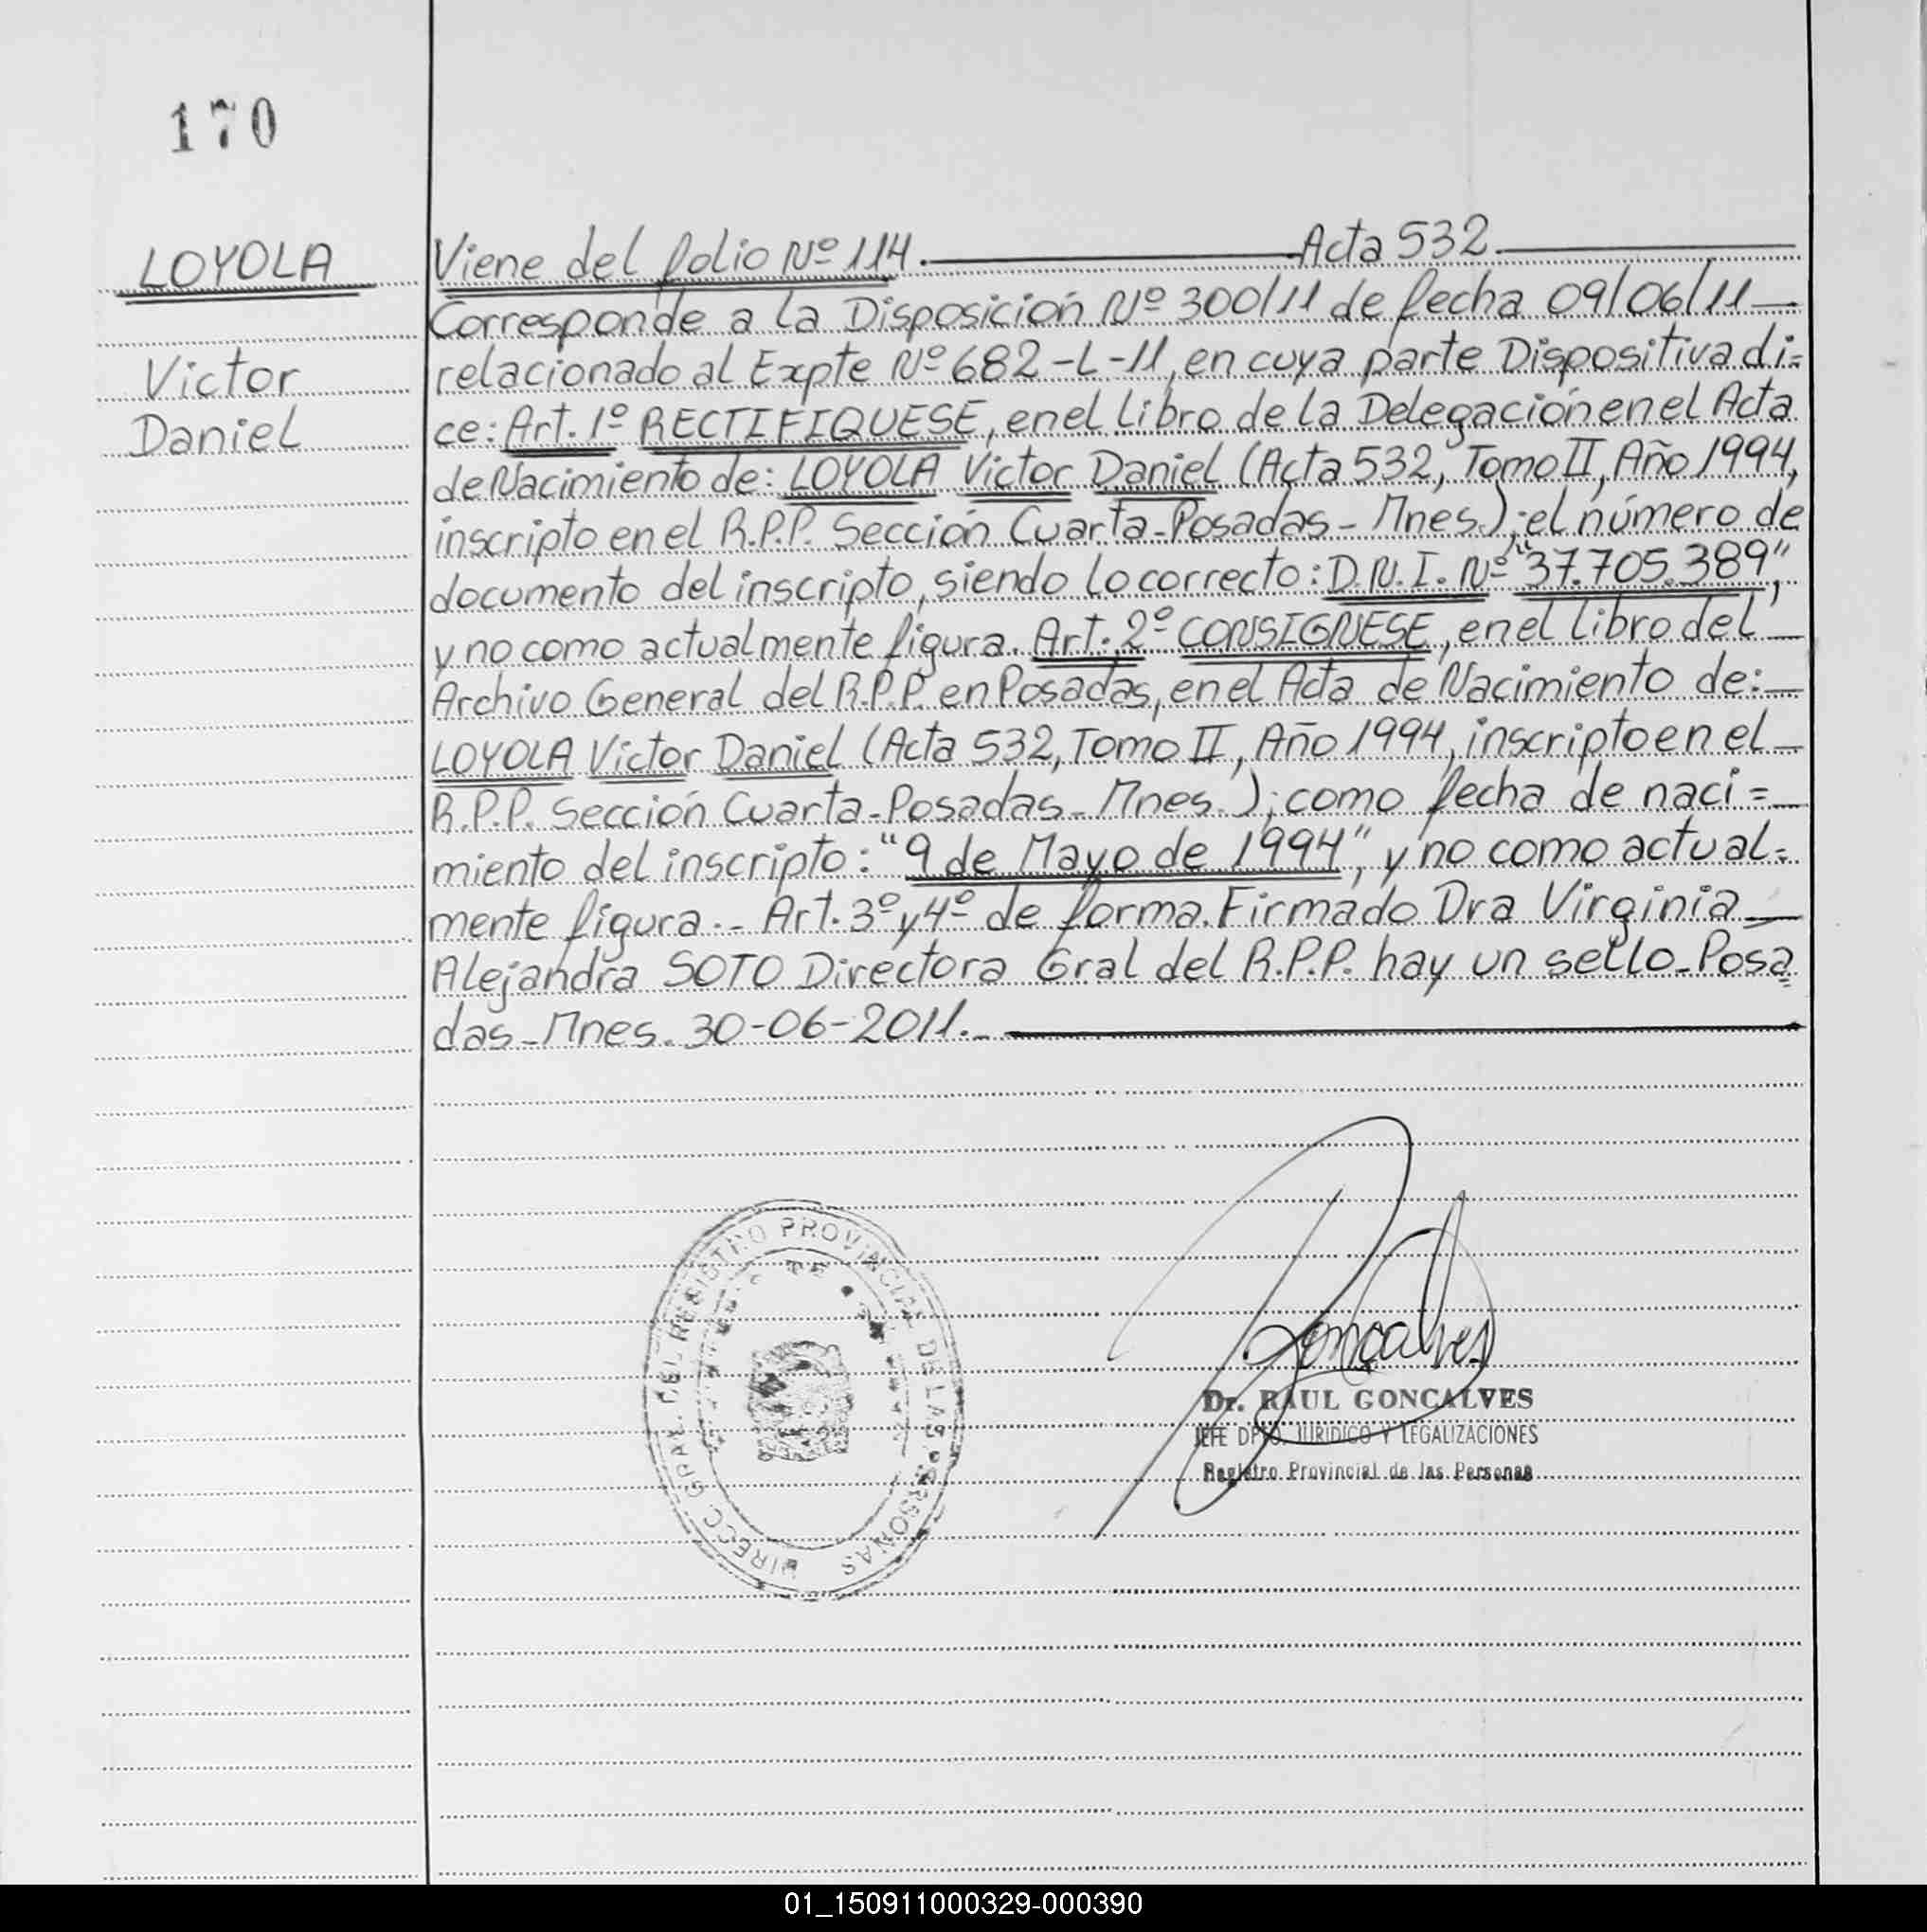 170
LOYOLA
Victor
Daniel
Viene del folio Nº 114. Acta 532.
Corresponde a la Disposición Nº 300/11 de fecha 09/06/11
relacionado al Expte Nº 682-L-11, en cuya parte Dispositiva di=
ce: Art. 1º RECTIFIQUESE, en el libro de la Delegación en el Acta
de Nacimiento de: LOYOLA Victor Daniel (Acta 532, Tomo II, Año 1994,
inscripto en el R.P.P. Sección Cuarta-Posadas-Mnes.); el número de
documento del inscripto, siendo lo correcto: D.N.I. Nº "37.705.389",
y no como actualmente figura. Art. 2º CONSIGNESE, en el libro del
Archivo General del R.P.P. en Posadas, en el Acta de Nacimiento de:
LOYOLA Victor Daniel (Acta 532, Tomo II, Año 1994, inscripto en el
R.P.P. Sección Cuarta-Posadas-Mnes.); como fecha de naci=
miento del inscripto: "9 de Mayo de 1994", y no como actual=
mente figura.- Art. 3º y 4º de forma. Firmado Dra Virginia
Alejandra SOTO Directora Gral del R.P.P. hay un sello-Posa=
das-Mnes. 30-06-2011.-
DIRECC. GRAL. DEL REGISTRO PROVINCIAL DE LAS PERSONAS
Goncalves
Dr. RAUL GONCALVES
JEFE DPTO. JURIDICO Y LEGALIZACIONES
Registro Provincial de las Personas
01_150911000329-000390